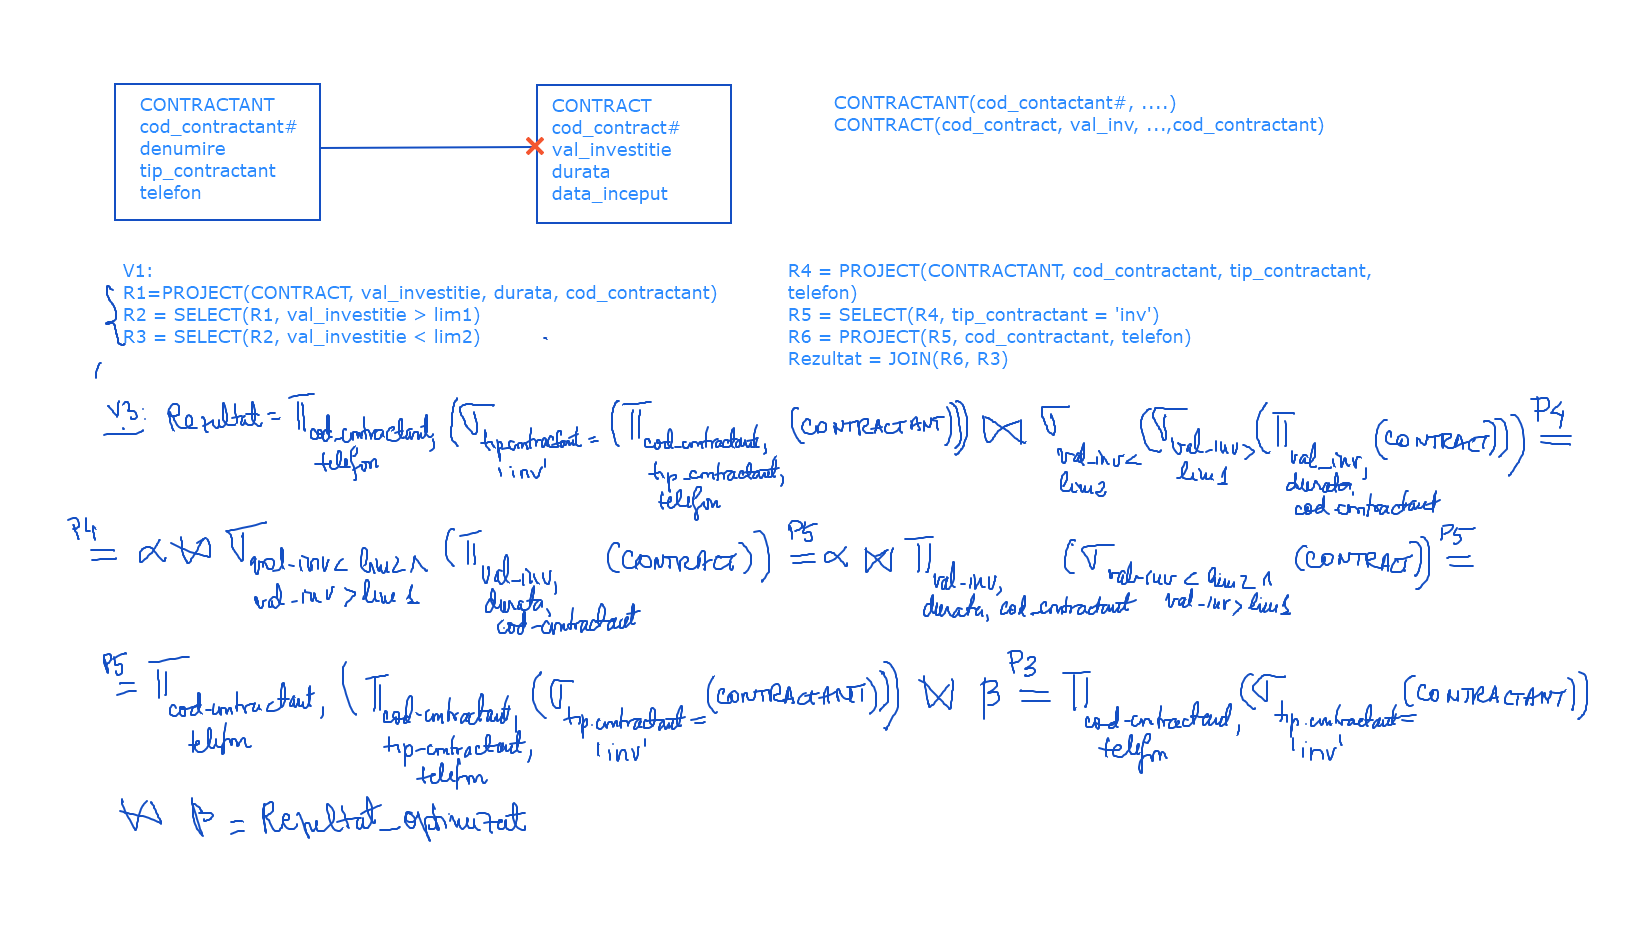 CONTRACTANT
cod_contractant#
denumire
tip_contractant
telefon
CONTRACT
cod_contract#
val_investitie
durata
data_inceput
CONTRACTANT(cod_contactant#, ....)
CONTRACT(cod_contract, val_inv, ...,cod_contractant)
V1:
R1=PROJECT(CONTRACT, val_investitie, durata, cod_contractant)
R2 = SELECT(R1, val_investitie > lim1)
R3 = SELECT(R2, val_investitie < lim2)
R4 = PROJECT(CONTRACTANT, cod_contractant, tip_contractant,
telefon)
R5 = SELECT(R4, tip_contractant = 'inv')
R6 = PROJECT(R5, cod_contractant, telefon)
Rezultat = JOIN(R6, R3)
V3: Rezultat = Π cod_contractant, telefon (σ tip_contractant = 'inv' (Π cod_contractant, tip_contractant, telefon (CONTRACTANT))) ⋈ σ val_inv < lim2 (σ val_inv > lim1 (Π val_inv, durata, cod_contractant (CONTRACT))) P4 =
P4 = α ⋈ σ val_inv < lim2 ∧ val_inv > lim1 (Π val_inv, durata, cod_contractant (CONTRACT)) P5 = α ⋈ Π val_inv, durata, cod_contractant (σ val_inv < lim2 ∧ val_inv > lim1 (CONTRACT)) P5 =
P5 = Π cod_contractant, telefon (Π cod_contractant, tip_contractant, telefon (σ tip_contractant = 'inv' (CONTRACTANT))) ⋈ β P3 = Π cod_contractant, telefon (σ tip_contractant = 'inv' (CONTRACTANT))
⋈ β = Rezultat_optimizat